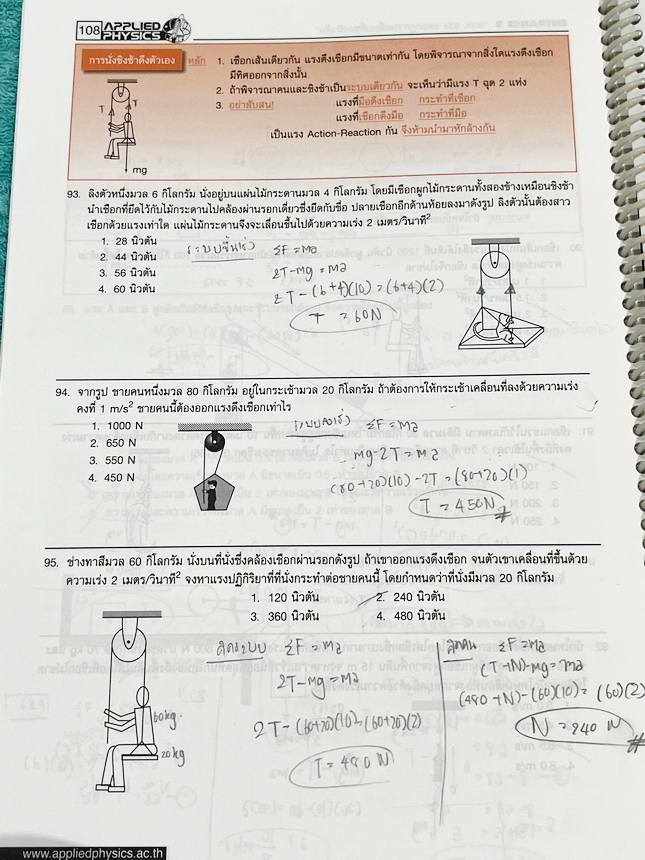 108 APPLIED PHYSICS
การนั่งชิงช้าดึงตัวเอง
หลัก 1. เชือกเส้นเดียวกัน แรงดึงเชือกมีขนาดเท่ากัน โดยพิจารณาจากสิ่งใดแรงดึงเชือก
มีทิศออกจากสิ่งนั้น
2. ถ้าพิจารณาคนและชิงช้าเป็นระบบเดียวกัน จะเห็นว่ามีแรง T ฉุด 2 แห่ง
3. อย่าสับสน! แรงที่มือดึงเชือก กระทำที่เชือก
แรงที่เชือกดึงมือ กระทำที่มือ
เป็นแรง Action-Reaction กัน จึงห้ามนำมาหักล้างกัน
T T
mg
93. ลิงตัวหนึ่งมวล 6 กิโลกรัม นั่งอยู่บนแผ่นไม้กระดานมวล 4 กิโลกรัม โดยมีเชือกผูกไม้กระดานทั้งสองข้างเหมือนชิงช้า
นำเชือกที่ยึดไว้กับไม้กระดานไปคล้องผ่านรอกเดี่ยวซึ่งยึดกับขื่อ ปลายเชือกอีกด้านห้อยลงมาดังรูป ลิงตัวนั้นต้องสาว
เชือกด้วยแรงเท่าใด แผ่นไม้กระดานจึงจะเลื่อนขึ้นไปด้วยความเร่ง 2 เมตร/วินาที²
1. 28 นิวตัน
2. 44 นิวตัน
3. 56 นิวตัน
4. 60 นิวตัน
ΣF = ma
2T-mg = ma
2T - (6+4)(10) = (6+4)(2)
T = 60N
94. จากรูป ชายคนหนึ่งมวล 80 กิโลกรัม อยู่ในกระเช้ามวล 20 กิโลกรัม ถ้าต้องการให้กระเช้าเคลื่อนที่ลงด้วยความเร่ง
คงที่ 1 m/s² ชายคนนี้ต้องออกแรงดึงเชือกเท่าไร
1. 1000 N
2. 650 N
3. 550 N
4. 450 N
ΣF = ma
mg-2T = ma
(80+20)(10) -2T = (80+20)(1)
T = 450N
95. ช่างทาสีมวล 60 กิโลกรัม นั่งบนที่นั่งซึ่งคล้องเชือกผ่านรอกดังรูป ถ้าเขาออกแรงดึงเชือก จนตัวเขาเคลื่อนที่ขึ้นด้วย
ความเร่ง 2 เมตร/วินาที² จงหาแรงปฏิกิริยาที่ที่นั่งกระทำต่อชายคนนี้ โดยกำหนดว่าที่นั่งมีมวล 20 กิโลกรัม
1. 120 นิวตัน 2. 240 นิวตัน
3. 360 นิวตัน 4. 480 นิวตัน
60kg.
20kg
ΣF = ma
2T-mg = ma
2T - (60+20)(10) = (60+20)(2)
T = 480 N
ΣF = ma
(T+N)-mg = ma
(480+N)-(60)(10) = (60)(2)
N = 240 N
www.appliedphysics.ac.th